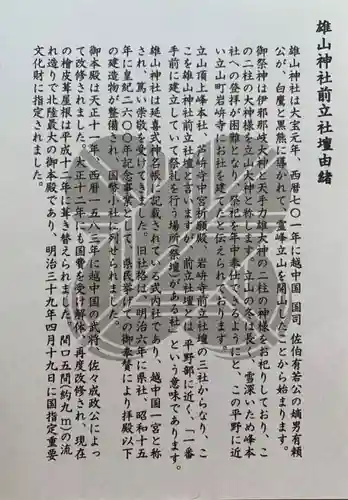 雄山神社前立社壇由緒
雄山神社は大宝元年、西暦七〇一年に越中国 国司 佐伯有若公の嫡男有頼
公が、白鷹と黒熊に導かれて、霊峰立山を開山したことから始まります。
御祭神は伊邪那岐大神と天手力雄大神の二柱の神様をお祀りしており、こ
の二柱の大神様を立山大神と称します。立山の冬は長く、雪深いため峰本
社への登拝が困難となり、祭祀を年中奉仕できるようにと、この平野に近
い立山町岩峅寺にお社を建てたと伝えられております。
立山頂上峰本社、芦峅寺中宮祈願殿、岩峅寺前立社壇の三社からなり、こ
こを雄山神社前立社壇と言いますが、前立社壇とは 平野部に近く、「一番
手前に建立していて祭礼を行う場所(祭壇がある社)」という意味であります。
雄山神社は延喜式神名帳に記載される式内社であり、越中国一宮と称
され、篤い崇敬を受けてきました。旧社格は、明治六年に県社、昭和十五
年に皇紀二六〇〇年記念事業として、県民挙げての御奉賛により拝殿以下
の建造物が整備され、国幣小社に列せられました。
御本殿は天正十一年、西暦一五八三年に越中国の武将、佐々成政公によっ
て改修されました。大正十二年にも国費を受け解体、再度改修され、現在
の檜皮葺屋根は平成十二年に葺き替えられました。間口五間(約九m)の流
れ造りで北陸最大の御本殿であり、明治三十九年四月十九日に国指定重要
文化財に指定されました。